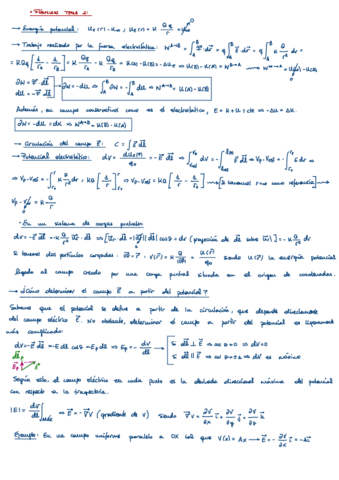 · FORMULAS TEMA 2:
→ Energía potencial: Ue(r) - U∞; Ue(r) = K Qq/r + U∞
→ Trabajo realizado por la fuerza electrostática: W^A→B = ∫_A^B F⃗ dr⃗ = q ∫_A^B E⃗ dr⃗ = q ∫_A^B K Q/r² dr =
= KQq [1/r_A - 1/r_B] = K Qq/r_A - K Qq/r_B = U(A) - U(B) = -ΔUe → U(B) - U(A) = W
∂W = F⃗·dl⃗
dU = -F⃗ dl⃗
→ ∂W = -dU ⇒ ∫_A^B ∂W = -∫_A^B dU ⇒ W^A→B = U(A) - U(B)
Además, en campo conservativo como es el electrostático, E = K + U = cte ⇒ -ΔU = ΔK.
∂W = -dU = dK ⇒ W^A→B = U(B) - U(A)
→ Circulación del campo E⃗: C = ∫ E⃗ dl⃗
→ Potencial electrostático: dV = dUe(r)/q₀ = -E⃗ dl⃗
⇒ Vp - Vref = -∫ K Q/r² dr = KQ [1/r] ⇒ Vp - Vref = KQ [1/r - 1/r₀] → Si tomamos r=∞ como referencia →
Vp - V∞ = K Q/r
· En un sistema de cargas puntuales
dV = -E⃗ dl⃗ = -K Q/r² u⃗r dl⃗ ⇒ [u⃗r dl⃗ = |u⃗r||dl⃗| cos θ = dr (proyección de dl⃗ sobre u⃗r)] = -K Q/r² dr
Si tenemos dos partículas cargadas: V(r⃗) = K Q/|r⃗| = U(r⃗)/q₀ siendo U(r⃗) la energía potencial
ligada al campo creado por una carga puntual situada en el origen de coordenadas.
→ ¿Cómo determinar el campo E⃗ a partir del potencial?
Sabemos que el potencial se define a partir de la circulación, que depende directamente
del campo eléctrico E⃗. No obstante, determinar el campo a partir del potencial es ligeramente
más complicado:
dV = -E⃗ dl⃗ = -E dl cos θ = -E_p dl ⇒ E_p = -dV/dl
Si dl⃗ ⊥ E⃗ ⇒ cos θ = 0 ⇒ dV = 0
Si dl⃗ ∥ E⃗ ⇒ cos θ = ±1 ⇒ dV es máximo
Según esto, el campo eléctrico en cada punto es la derivada direccional máxima del potencial
con respecto a la trayectoria.
|E| = dV/dl |máx ⇒ E⃗ = -∇⃗V (gradiente de V) siendo ∇⃗V = ∂V/∂x i⃗ + ∂V/∂y j⃗ + ∂V/∂z k⃗
Ejemplo: En un campo uniforme paralelo a OX tal que V(x) = Ax → E⃗ = -∂V/∂x i⃗ = -A i⃗